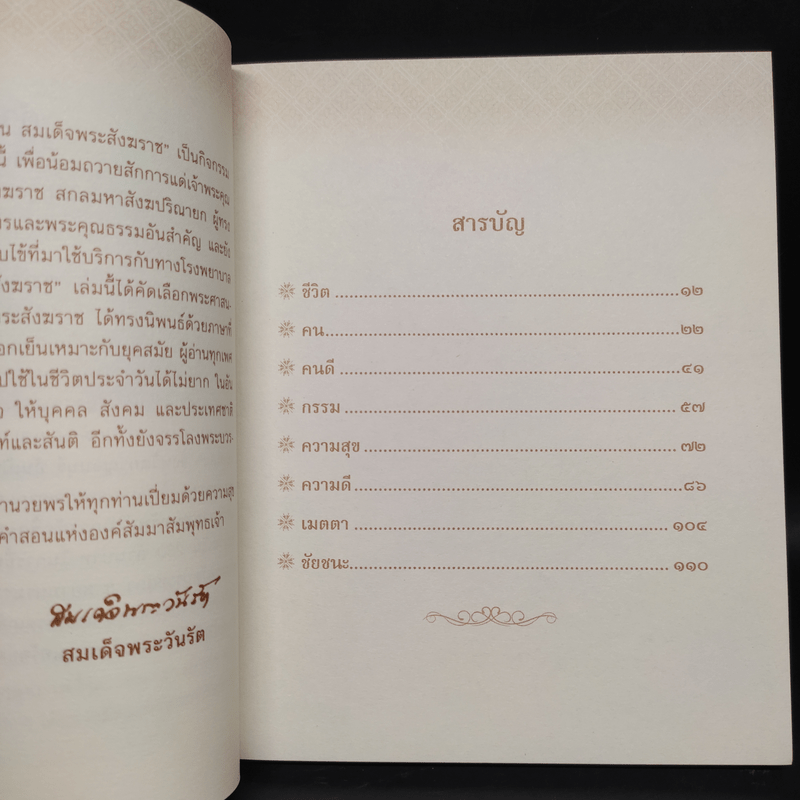 น สมเด็จพระสังฆราช" เป็นกิจกรรม
นี้ เพื่อน้อมถวายสักการแด่เจ้าพระคุณ
ฆราช สกลมหาสังฆปริณายก ผู้ทรง
รและพระคุณธรรมอันสำคัญ และยัง
ไข้ที่มาใช้บริการกับทางโรงพยาบาล
ังฆราช" เล่มนี้ได้คัดเลือกพระศาสน-
ระสังฆราช ได้ทรงนิพนธ์ด้วยภาษาที่
อกเย็นเหมาะกับยุคสมัย ผู้อ่านทุกเพศ
ปใช้ในชีวิตประจำวันได้ไม่ยาก ในอัน
ให้บุคคล สังคม และประเทศชาติ
ท์และสันติ อีกทั้งยังจรรโลงพระบวร-
ำนวยพรให้ทุกท่านเปี่ยมด้วยความสุข
คำสอนแห่งองค์สัมมาสัมพุทธเจ้า
สมเด็จพระวันรัต
สมเด็จพระวันรัต
สารบัญ
ชีวิต ........................................................ ๑๒
คน........................................................ ๒๒
คนดี ........................................................ ๔๑
กรรม ........................................................ ๕๗
ความสุข ........................................................ ๗๒
ความดี........................................................ ๘๖
เมตตา ........................................................ ๑๐๔
ชัยชนะ........................................................ ๑๑๐